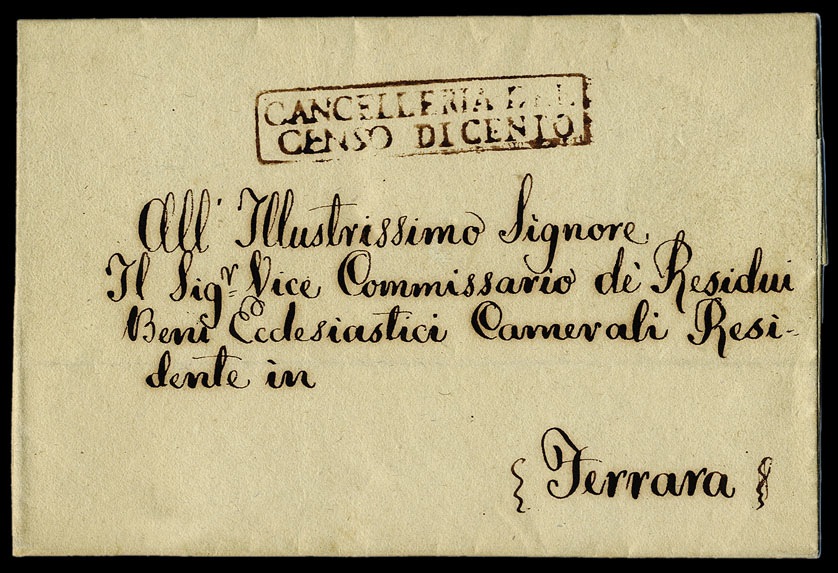 CANCELLERIA DEL
CENSO DI CENTO
All' Illustrissimo Signore
Il Sigr. Vice Commissario de' Residui
Beni Ecclesiastici Camerali Resi-
dente in
{ Ferrara }